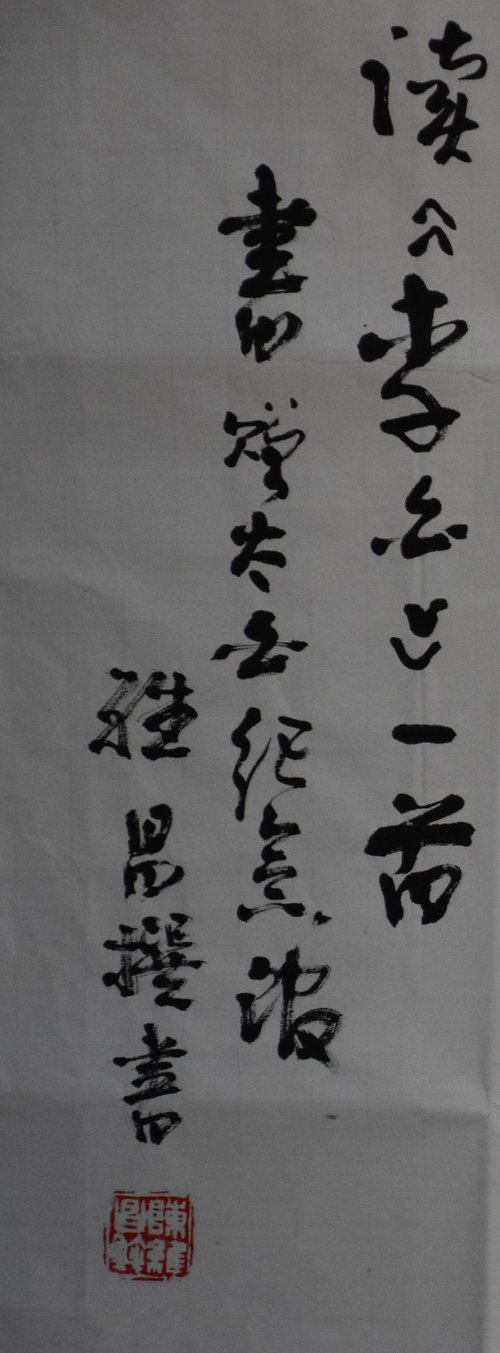 讀《李白》一首
書贈太白紀念館
雅昌撰書